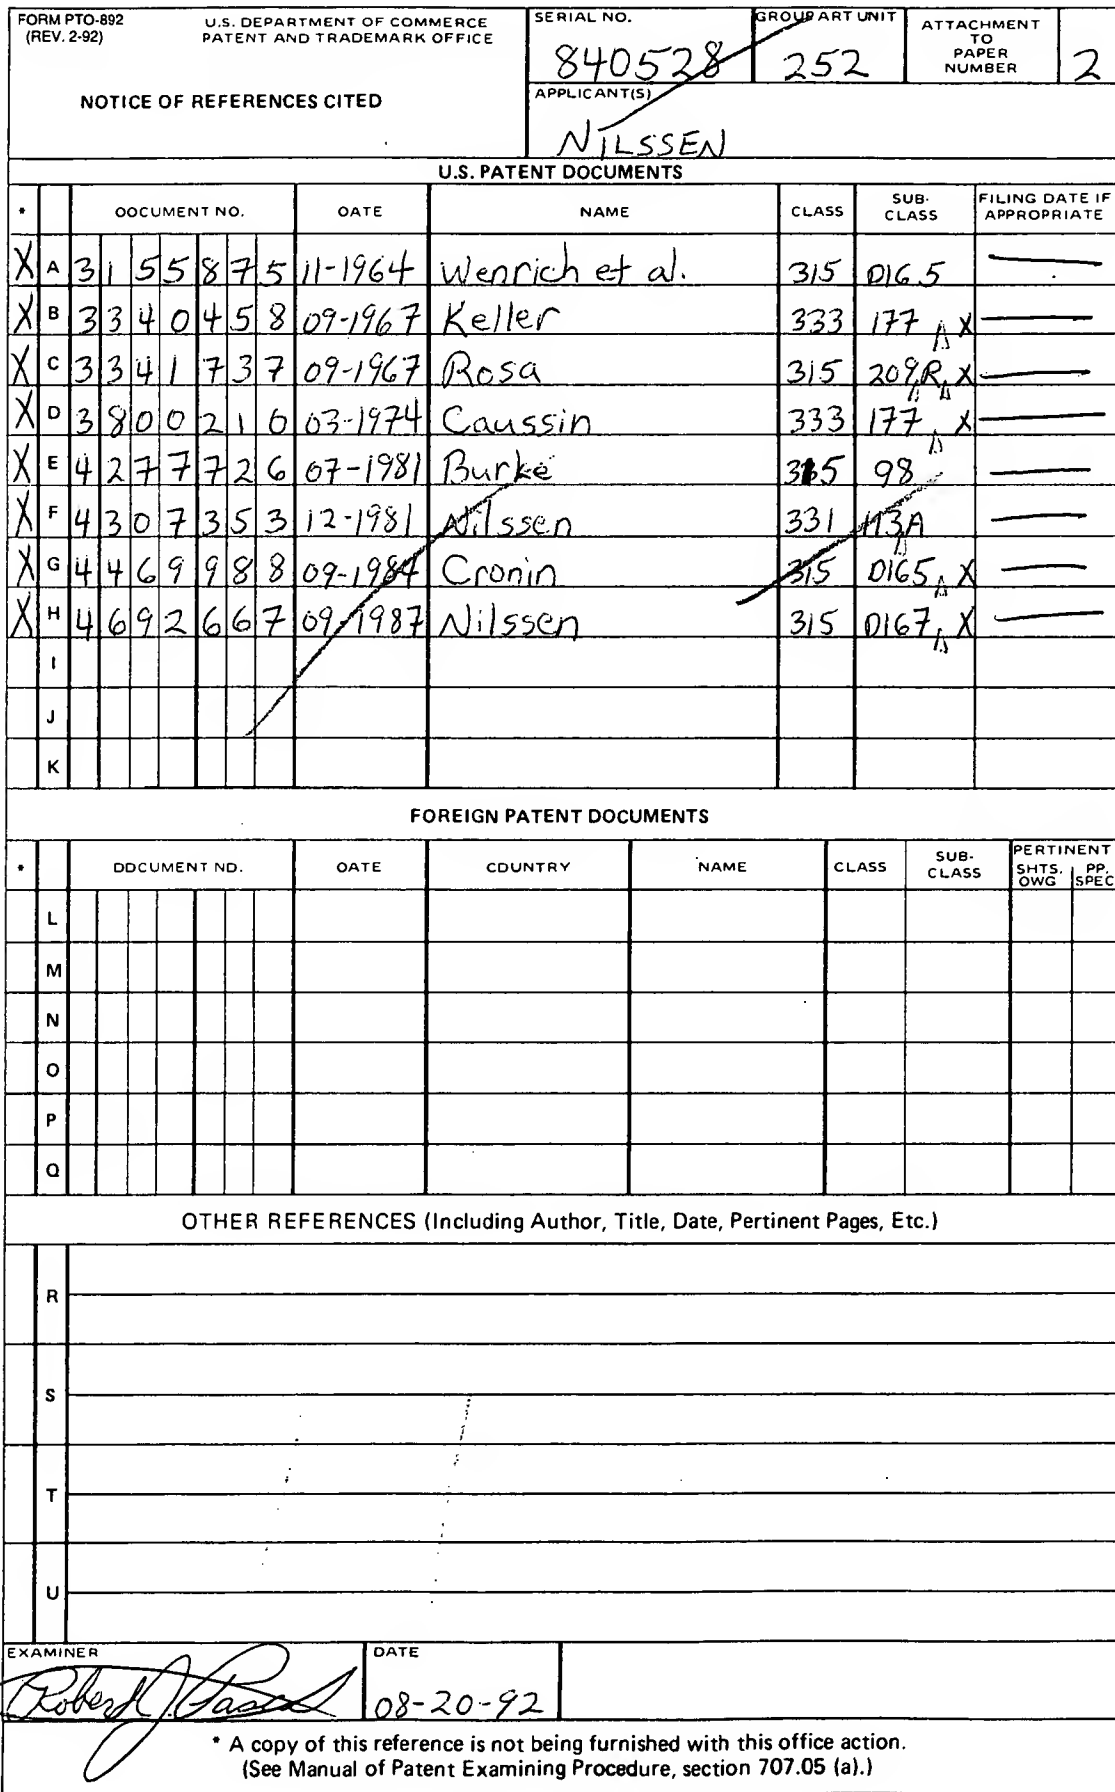 FORM PTO-892 U.S. DEPARTMENT OF COMMERCE
(REV. 2-92) PATENT AND TRADEMARK OFFICE
NOTICE OF REFERENCES CITED
SERIAL NO. GROUP ART UNIT ATTACHMENT TO PAPER NUMBER
840528 252 2
APPLICANT(S)
NILSSEN
U.S. PATENT DOCUMENTS
* DOCUMENT NO. DATE NAME CLASS SUB-CLASS FILING DATE IF APPROPRIATE
X A 3155875 11-1964 Wenrich et al. 315 DIG 5 —
X B 3340458 09-1967 Keller 333 177 X —
X C 3341737 09-1967 Rosa 315 209 R X —
X D 3800216 03-1974 Caussin 333 177 X —
X E 4277726 07-1981 Burke 315 98 —
X F 4307353 12-1981 Nilssen 331 113A —
X G 4469988 09-1984 Cronin 315 DIG5 X —
X H 4692667 09-1987 Nilssen 315 DIG7 X —
I
J
K
FOREIGN PATENT DOCUMENTS
* DOCUMENT NO. DATE COUNTRY NAME CLASS SUB-CLASS PERTINENT SHTS. DWG PP. SPEC
L
M
N
O
P
Q
OTHER REFERENCES (Including Author, Title, Date, Pertinent Pages, Etc.)
R
S
T
U
EXAMINER DATE
Robert J. 08-20-92
* A copy of this reference is not being furnished with this office action.
(See Manual of Patent Examining Procedure, section 707.05 (a).)